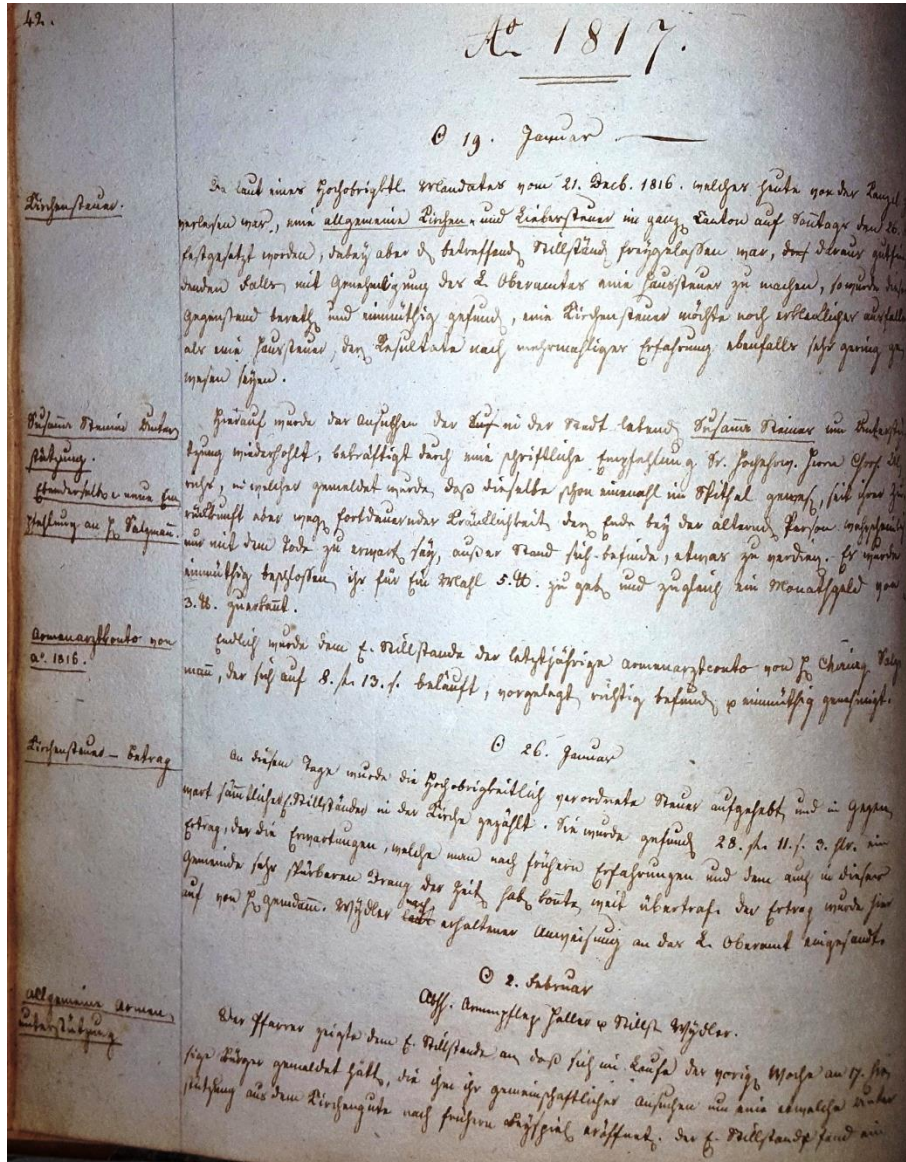 42.
Aº 1817.
☉ 19. Januar
Kirchensteuer.
Da laut eines Hochobrigktl. Mandates vom 21. Decb. 1816. welches heute von der Kanzel
verlesen war, eine allgemeine Kirchen- und Liebessteuer im ganz. Canton auf Sonntags den 26.
festgesetzt worden, dabey aber d. betreffend. Stillständ. freygelassen war, daraus gutfin-
denden Falls mit Genehmigung des L. Oberamtes eine Haussteuer zu machen, so wurde dieser
Gegenstand berath. und einmüthig gefund., eine Kirchensteuer möchte noch erklecklicher ausfallen
als eine Haussteuer, der. Resultate nach mehrmahliger Erfahrung ebenfalls sehr gering ge-
wesen seyen.
Susanna Steiner Unter-
stützung.
Ebenderselb. neue Em-
pfehlung an H. Salzmann.
Hierauf wurde das Ansuchen der in der Stadt lebend. Susanna Steiner um Unterstü-
tzung wiederhohlt, bekräftigt durch eine schriftliche Empfehlung Sr. Hochehrw. Herrn Chorh.
in welcher gemeldet wurde, daß dieselbe schon einmahl im Spithal gewes., seit ihrer Zu-
rückkunft aber weg. fortdauernder Kränklichkeit, der. Ende bey der alternd. Person wahrscheinl.
nur mit dem Tode zu erwart. sey, außer Stand sich befinde, etwas zu verdien. Es wurde
einmüthig beschlossen, ihr für Ein Mahl 5. ℔. zu geb. und zugleich ein Monathgeld von
3. ℔. zuerkennt.
Armenarztkonto von
aº. 1816.
Endlich wurde dem E. Stillstande der letztjährige Armenarztconto von H. Chirurg. Salz-
mann, der sich auf 8. fl. 13. ß. beläuft, vorgelegt, richtig befund. & einmüthig genehmigt.
☉ 26. Januar
Kirchensteuer-Betrag
An diesem Tage wurde die Hochobrigkeitlich verordnete Steuer aufgehebt und in Gegen-
wart sämtlicher Stillständer in der Kirche gezählt. Sie wurde gefund. 28. fl. 11. ß. 3. hlr. ein
Ertrag, der die Erwartungen, welche man nach frühern Erfahrungen und dem auch in dieser
Gemeinde sehr spürbaren Drang der Zeit hab. konnte, weit übertraf. Der Ertrag wurde hier-
auf von H. Gemdamm. Wydler nach erhaltener Anweisung an das L. Oberamt eingesandt.
☉ 2. Februar
Abs. Armenpfleg. Haller & Stillst. Wydler.
Allgemeine Armen-
unterstützung
Der Pfarrer zeigte dem E. Stillstande an, daß sich im Laufe der vorig. Woche an 17. hie-
sige Bürger gemeldet hätt., die ihm ihr gemeinschaftliches Ansuchen um eine etwelche Unter-
stützung aus dem Kirchengute nach frühern Beyspiel. eröffnet. Der E. Stillstand fand ein-